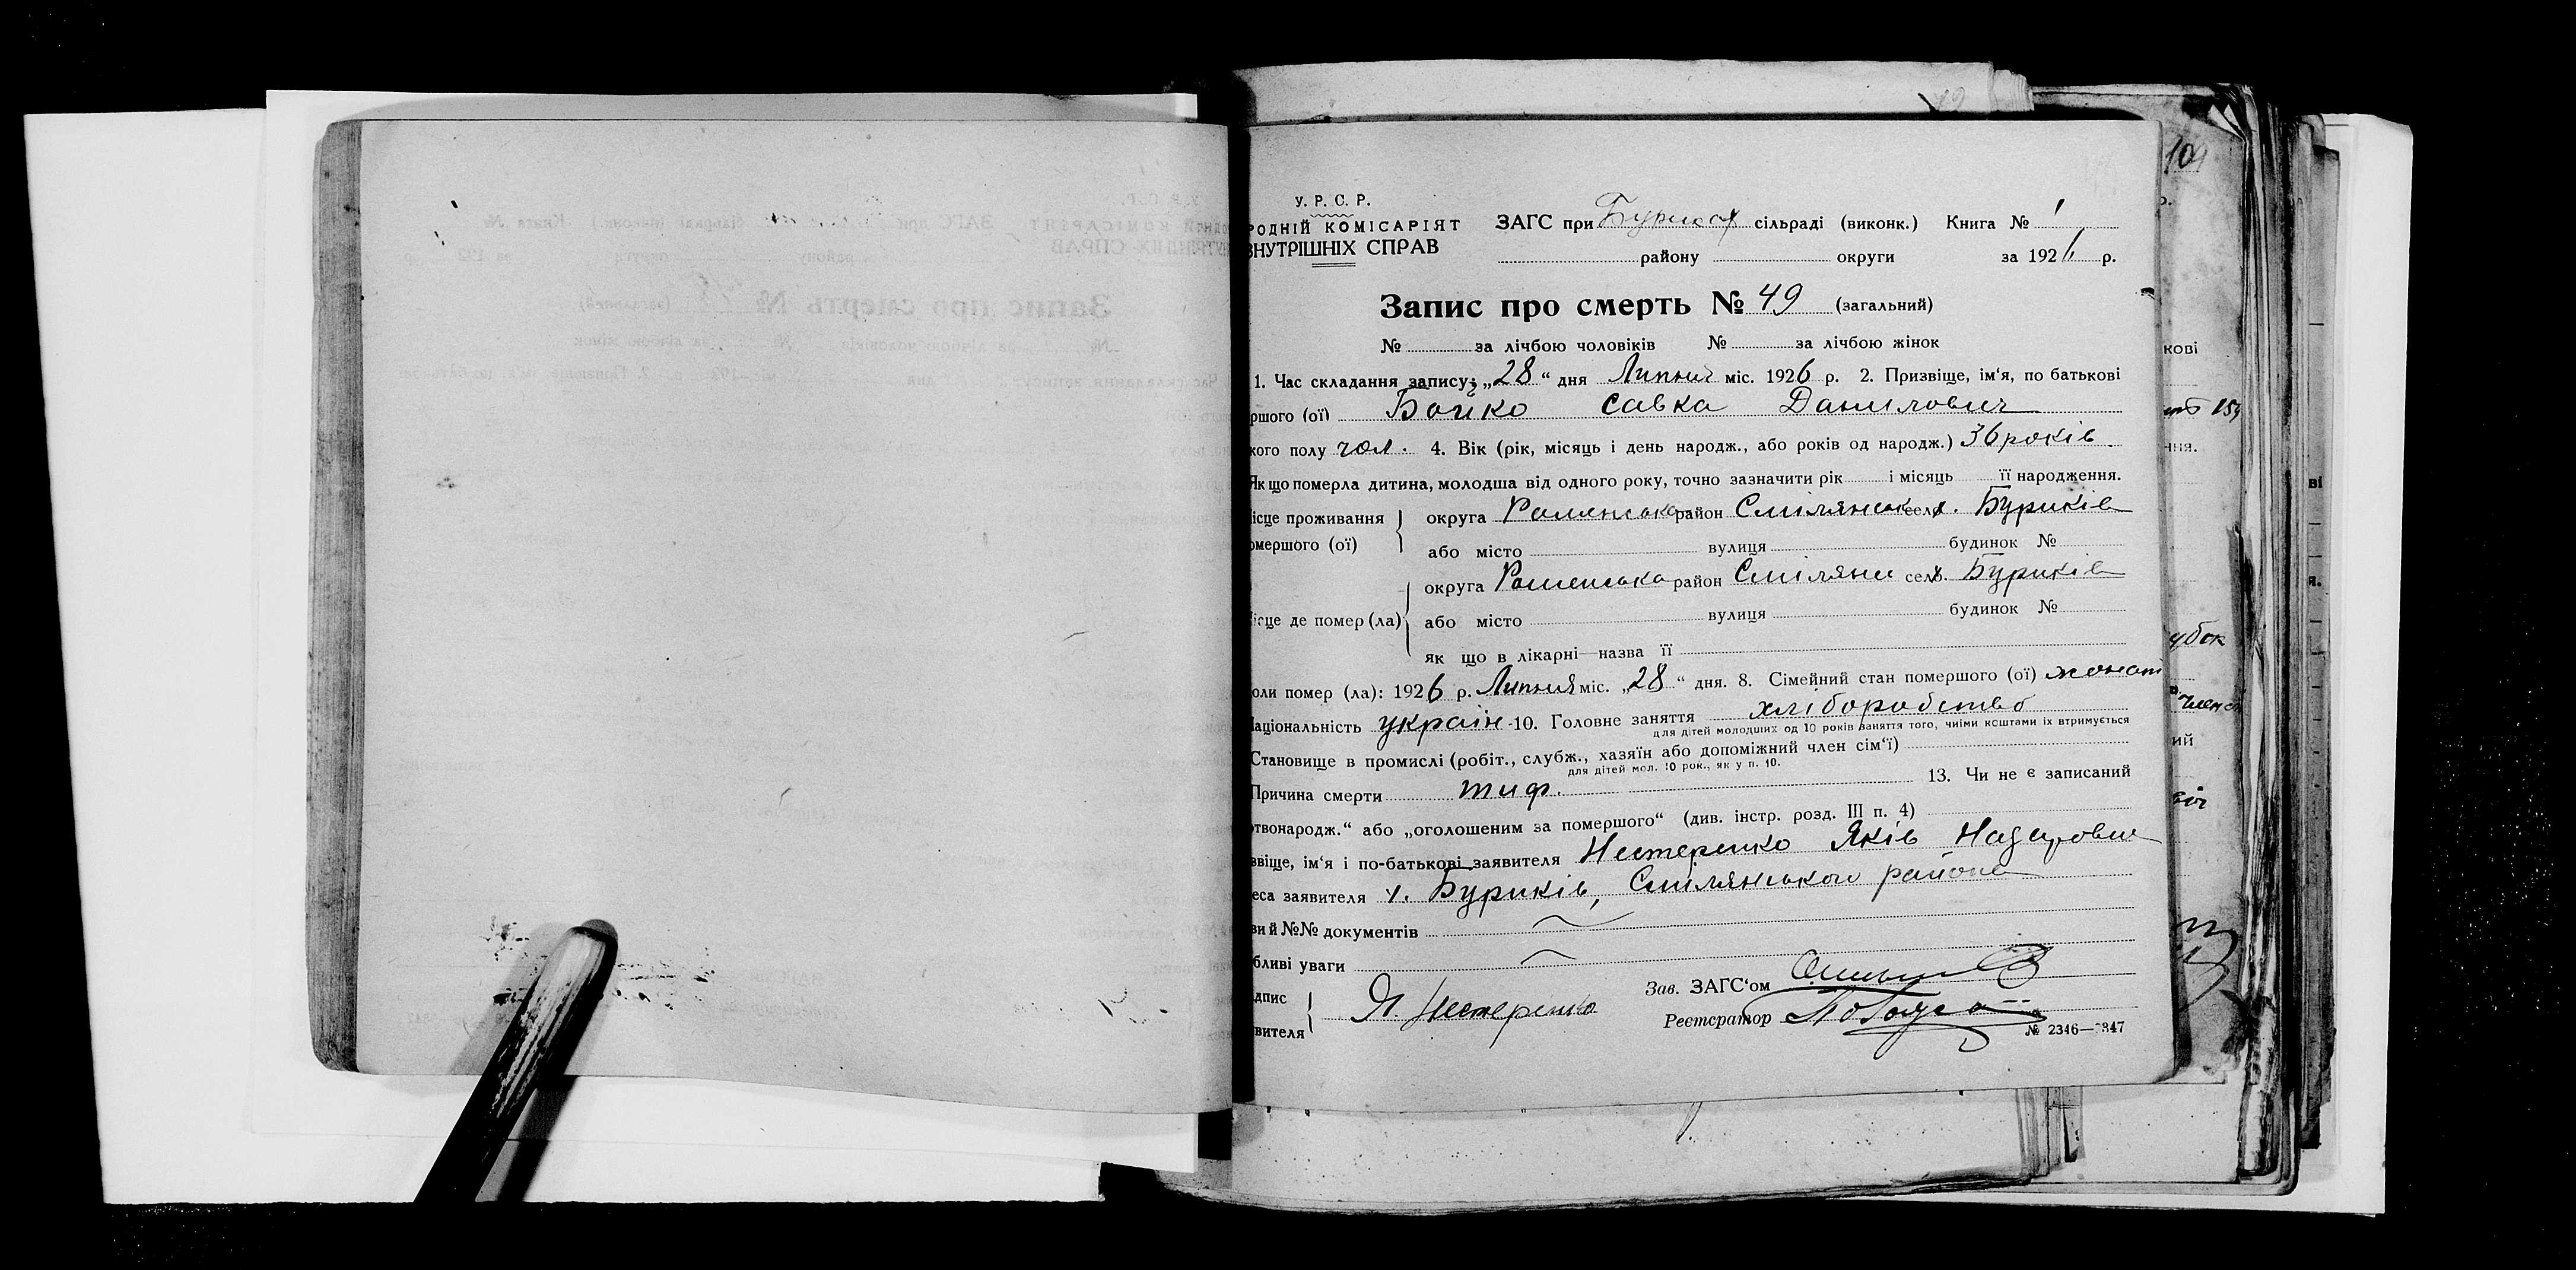 У. Р. С. Р.
РОДНІЙ КОМІСАРІЯТ
ВНУТРІШНІХ СПРАВ
ЗАГС при сільраді (виконк.) Книга № 1
району округи за 1926 р.
Запис про смерть № 49 (загальний)
№ за лічбою чоловіків № за лічбою жінок
1. Час складання запису: „28“ дня Липня міс. 1926 р. 2. Призвіще, ім‘я, по батькові
ршого (ої) Бойко Савка Данилович
кого полу чол. 4. Вік (рік, місяць і день народж., або років од народж.) 36 років
Як що померла дитина, молодша від одного року, точно зазначити рік і місяць її народження.
ісце проживання
омершого (ої)
округа Роменська район Смілянськ село х. Буриків
або місто вулиця будинок №
округа Роменська район Смілянськ село х. Буриків
ісце де помер (ла)
або місто вулиця будинок №
як що в лікарні—назва її
оли помер (ла): 1926 р. Липня міс. „28“ дня. 8. Сімейний стан помершого (ої) жонат
аціональність україн. 10. Головне заняття хліборобство
для дітей молодших од 10 років заняття того, чиїми коштами їх втримується
Становище в промислі (робіт., служб., хазяїн або допоміжний член сім‘ї)
для дітей мол. 10 рок., як у п. 10.
Причина смерти тиф. 13. Чи не є записаний
твонародж.“ або „оголошеним за помершого“ (див. інстр. розд. III п. 4)
звіще, ім‘я і по-батькові заявителя Нестеренко Яків Назарович
еса заявителя х. Буриків, Смілянського района
ви й №№ документів
бливі уваги
дпис
вителя
Я. Нестеренко
Зав. ЗАГС‘ом
Реєстратор
№ 2346—2347